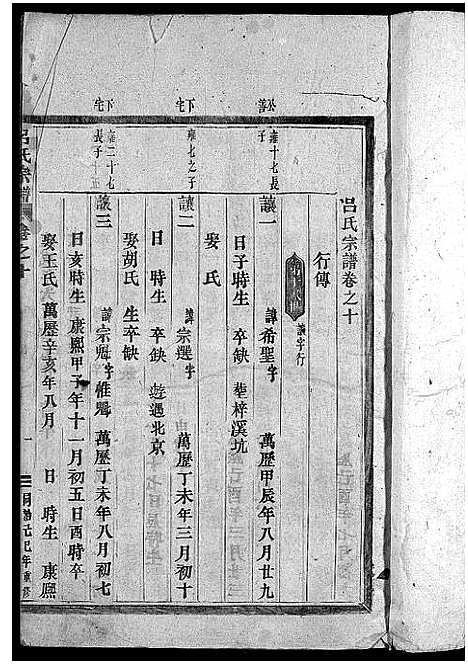 呂氏宗譜卷之十
行傳
讓字行
公善
雍十七長子
讓一 諱希聖字 萬歷甲辰年八月廿九
日子時生 卒缺 塟梓溪坑
娶 氏
下宅
雍七之子
讓二 諱宗選字 萬歷丁未年三月初十
日 時生 卒缺 遊遇北京
娶胡氏 生卒缺
下宅
雍二十七長子
讓三 諱宗 字惟 萬歷丁未年八月初七
日亥時生 康熙甲子年十一月初五日酉時卒
娶王氏 萬歷辛亥年八月 日 時生 康熙
呂氏宗譜
卷之十
一
年重修